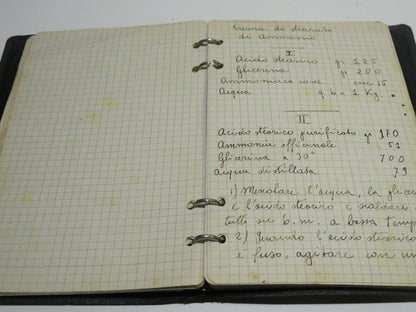 Crema di stearato
di Ammonio
I
Acido stearico gr 125
Glicerina gr 200
Ammoniaca conc cmc 15
Acqua q b a 1 Kg.
II
Acido stearico purificato gr 170
Ammonia officinale 51
Glicerina a 30° 700
Acqua distillata 79
1) Mescolare l'acqua, la glice
e l'acido stearico e scaldare
tutto su b. m. a bassa temp
2) Quando l'acido stearico
è fuso, agitare con